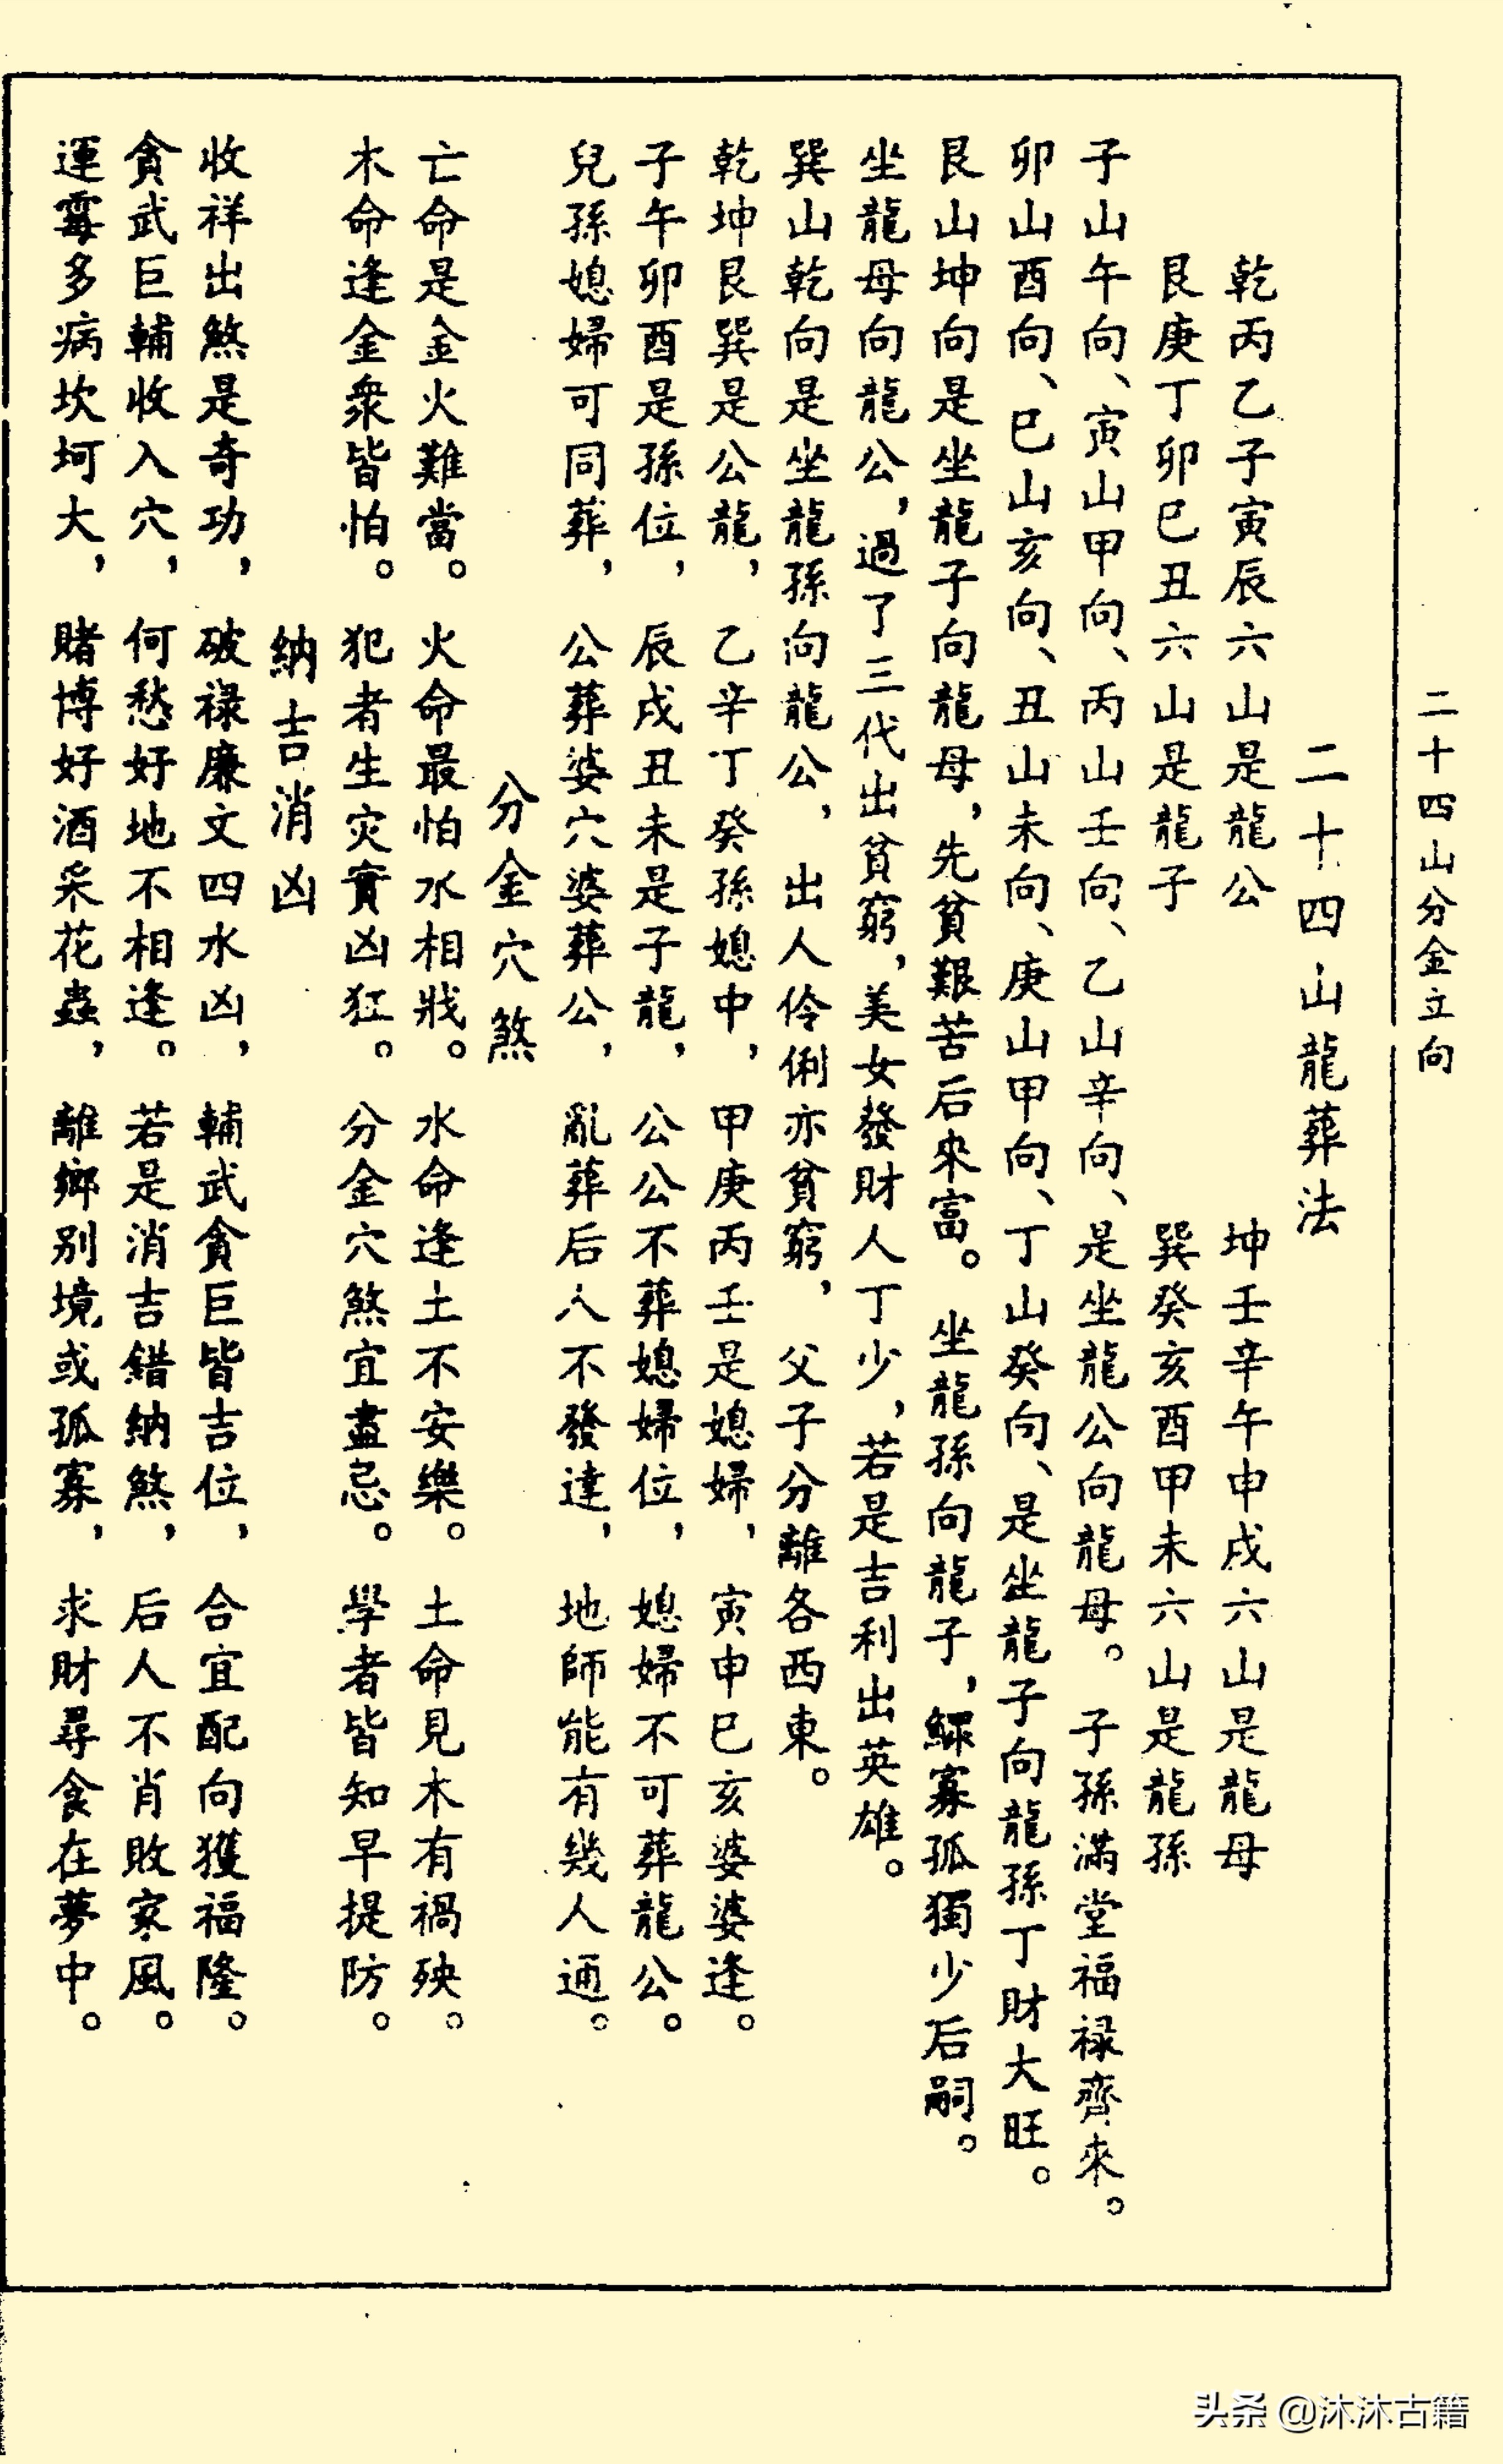 二十四山分金立向
二十四山龍葬法
乾丙乙子寅辰六山是龍公　坤壬辛午申戌六山是龍母
艮庚丁卯巳丑六山是龍子　巽癸亥酉甲未六山是龍孫
子山午向、寅山甲向、丙山壬向、乙山辛向、是坐龍公向龍母。子孫滿堂福禄齊來。
卯山酉向、巳山亥向、丑山未向、庚山甲向、丁山癸向、是坐龍子向龍孫丁財大旺。
艮山坤向是坐龍子向龍母，先貧艱苦后來富。坐龍孫向龍子，鰥寡孤獨少后嗣。
坐龍母向龍公，過了三代出貧窮，美女發財人丁少，若是吉利出英雄。
巽山乾向是坐龍孫向龍公，出人伶俐亦貧窮，父子分離各西東。
乾坤艮巽是公龍，乙辛丁癸孫媳中，甲庚丙壬是媳婦，寅申巳亥婆婆逢。
子午卯酉是孫位，辰戌丑未是子龍，公公不葬媳婦位，媳婦不可葬龍公。
兒孫媳婦可同葬，公葬婆穴婆葬公，亂葬后人不發達，地師能有幾人通。
分金穴煞
亡命是金火難當。火命最怕水相戕。水命逢土不安樂。土命見木有禍殃。
木命逢金衆皆怕。犯者生灾實凶狂。分金穴煞宜盡忌。學者皆知早提防。
納吉消凶
收祥出煞是奇功，破禄廉文四水凶，輔武貪巨皆吉位，合宜配向獲福隆。
貪武巨輔收入穴，何愁好地不相逢。若是消吉錯納煞，后人不肖敗家風。
運霉多病坎坷大，賭博好酒采花蟲，離鄉别境或孤寡，求財尋食在夢中。
头条 @沐沐古籍